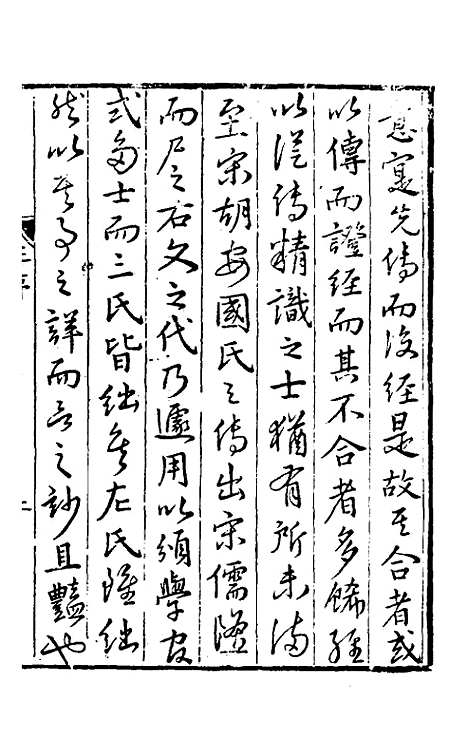 意寔先傳而後經是故其合者或
以傳而證經而其不合者多飾經
以從傳精識之士猶有所未滿
至宋胡安國氏之傳出宋儒隆
而尸之右文之代乃遽用以頒學官
式多士而三氏皆絀矣左氏雖絀
然以其事之詳而言之妙且豔也